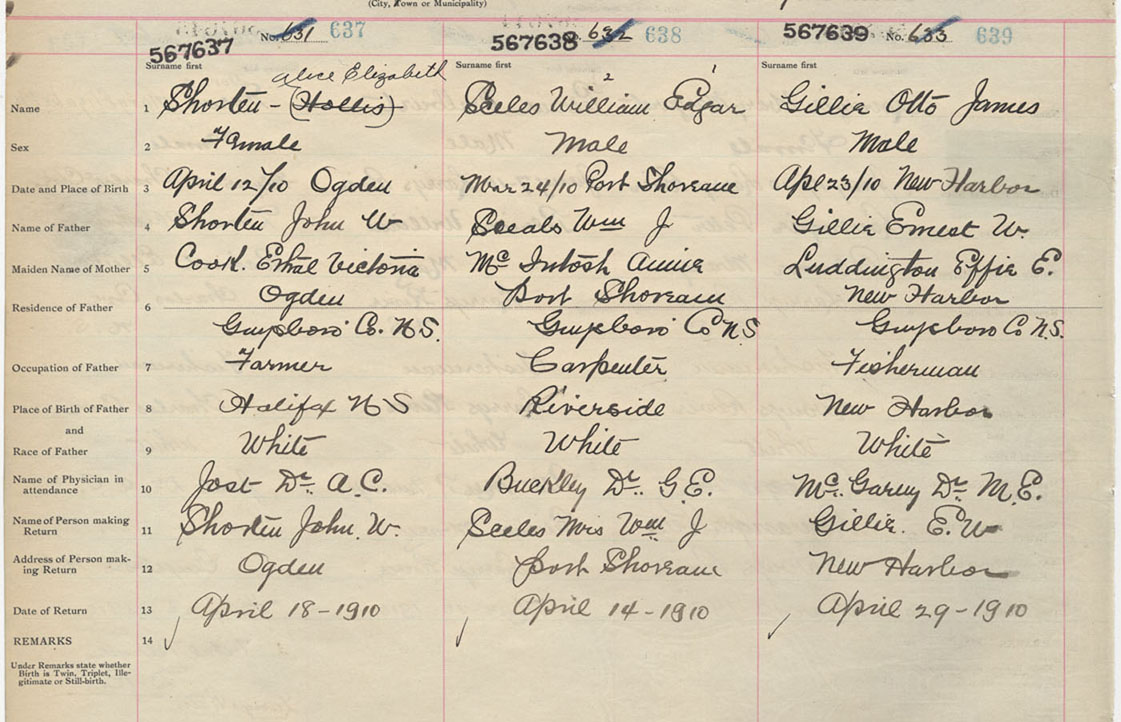 (City, Town or Municipality)
567637 No. 631 637 567638 632 638 567639 No. 633 639
Surname first Surname first Surname first
Alice Elizabeth 2 1
Name 1 Shorten - (Hollis) Seeles William Edgar Gillie Otto James
Sex 2 Female Male Male
Date and Place of Birth 3 April 12/10 Ogden Mar 24/10 Port Shoreham Apl 23/10 New Harbor
Name of Father 4 Shorten John W Seeals Wm J Gillie Ernest W.
Maiden Name of Mother 5 Cook. Ethel Victoria Mc Intosh Annie Luddington Effie E.
Residence of Father 6 Ogden Port Shoreham New Harbor
Guysboro Co. N.S. Guysboro Co N.S Guysboro Co N.S.
Occupation of Father 7 Farmer Carpenter Fisherman
Place of Birth of Father 8 Halifax N S Riverside New Harbor
and
Race of Father 9 White White White
Name of Physician in
attendance 10 Jost Dr. A.C. Buckley Dr. G.E. Mc. Dr. M.E.
Name of Person making
Return 11 Shorten John. W. Seeles Mrs Wm J Gillie. E. W
Address of Person mak-
ing Return 12 Ogden Port Shoreham New Harbor
Date of Return 13 April 18-1910 April 14-1910 April 29-1910
REMARKS 14
Under Remarks state whether
Birth is Twin, Triplet, Ille-
gitimate or Still-birth.